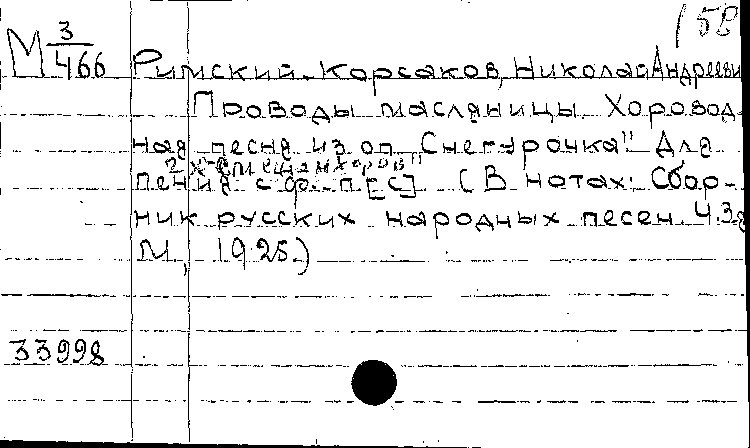 158
М 3/466
Римский-Корсаков, Николай Андреевич
Проводы масляницы. Хоровод-
ная песня из оп. „Снегурочка". Для
2-х смешан. хоров"
пения с ф.-п. [с] (В нотах: Сбор-
ник русских народных песен. Ч.3я
М., 1925.)
33998